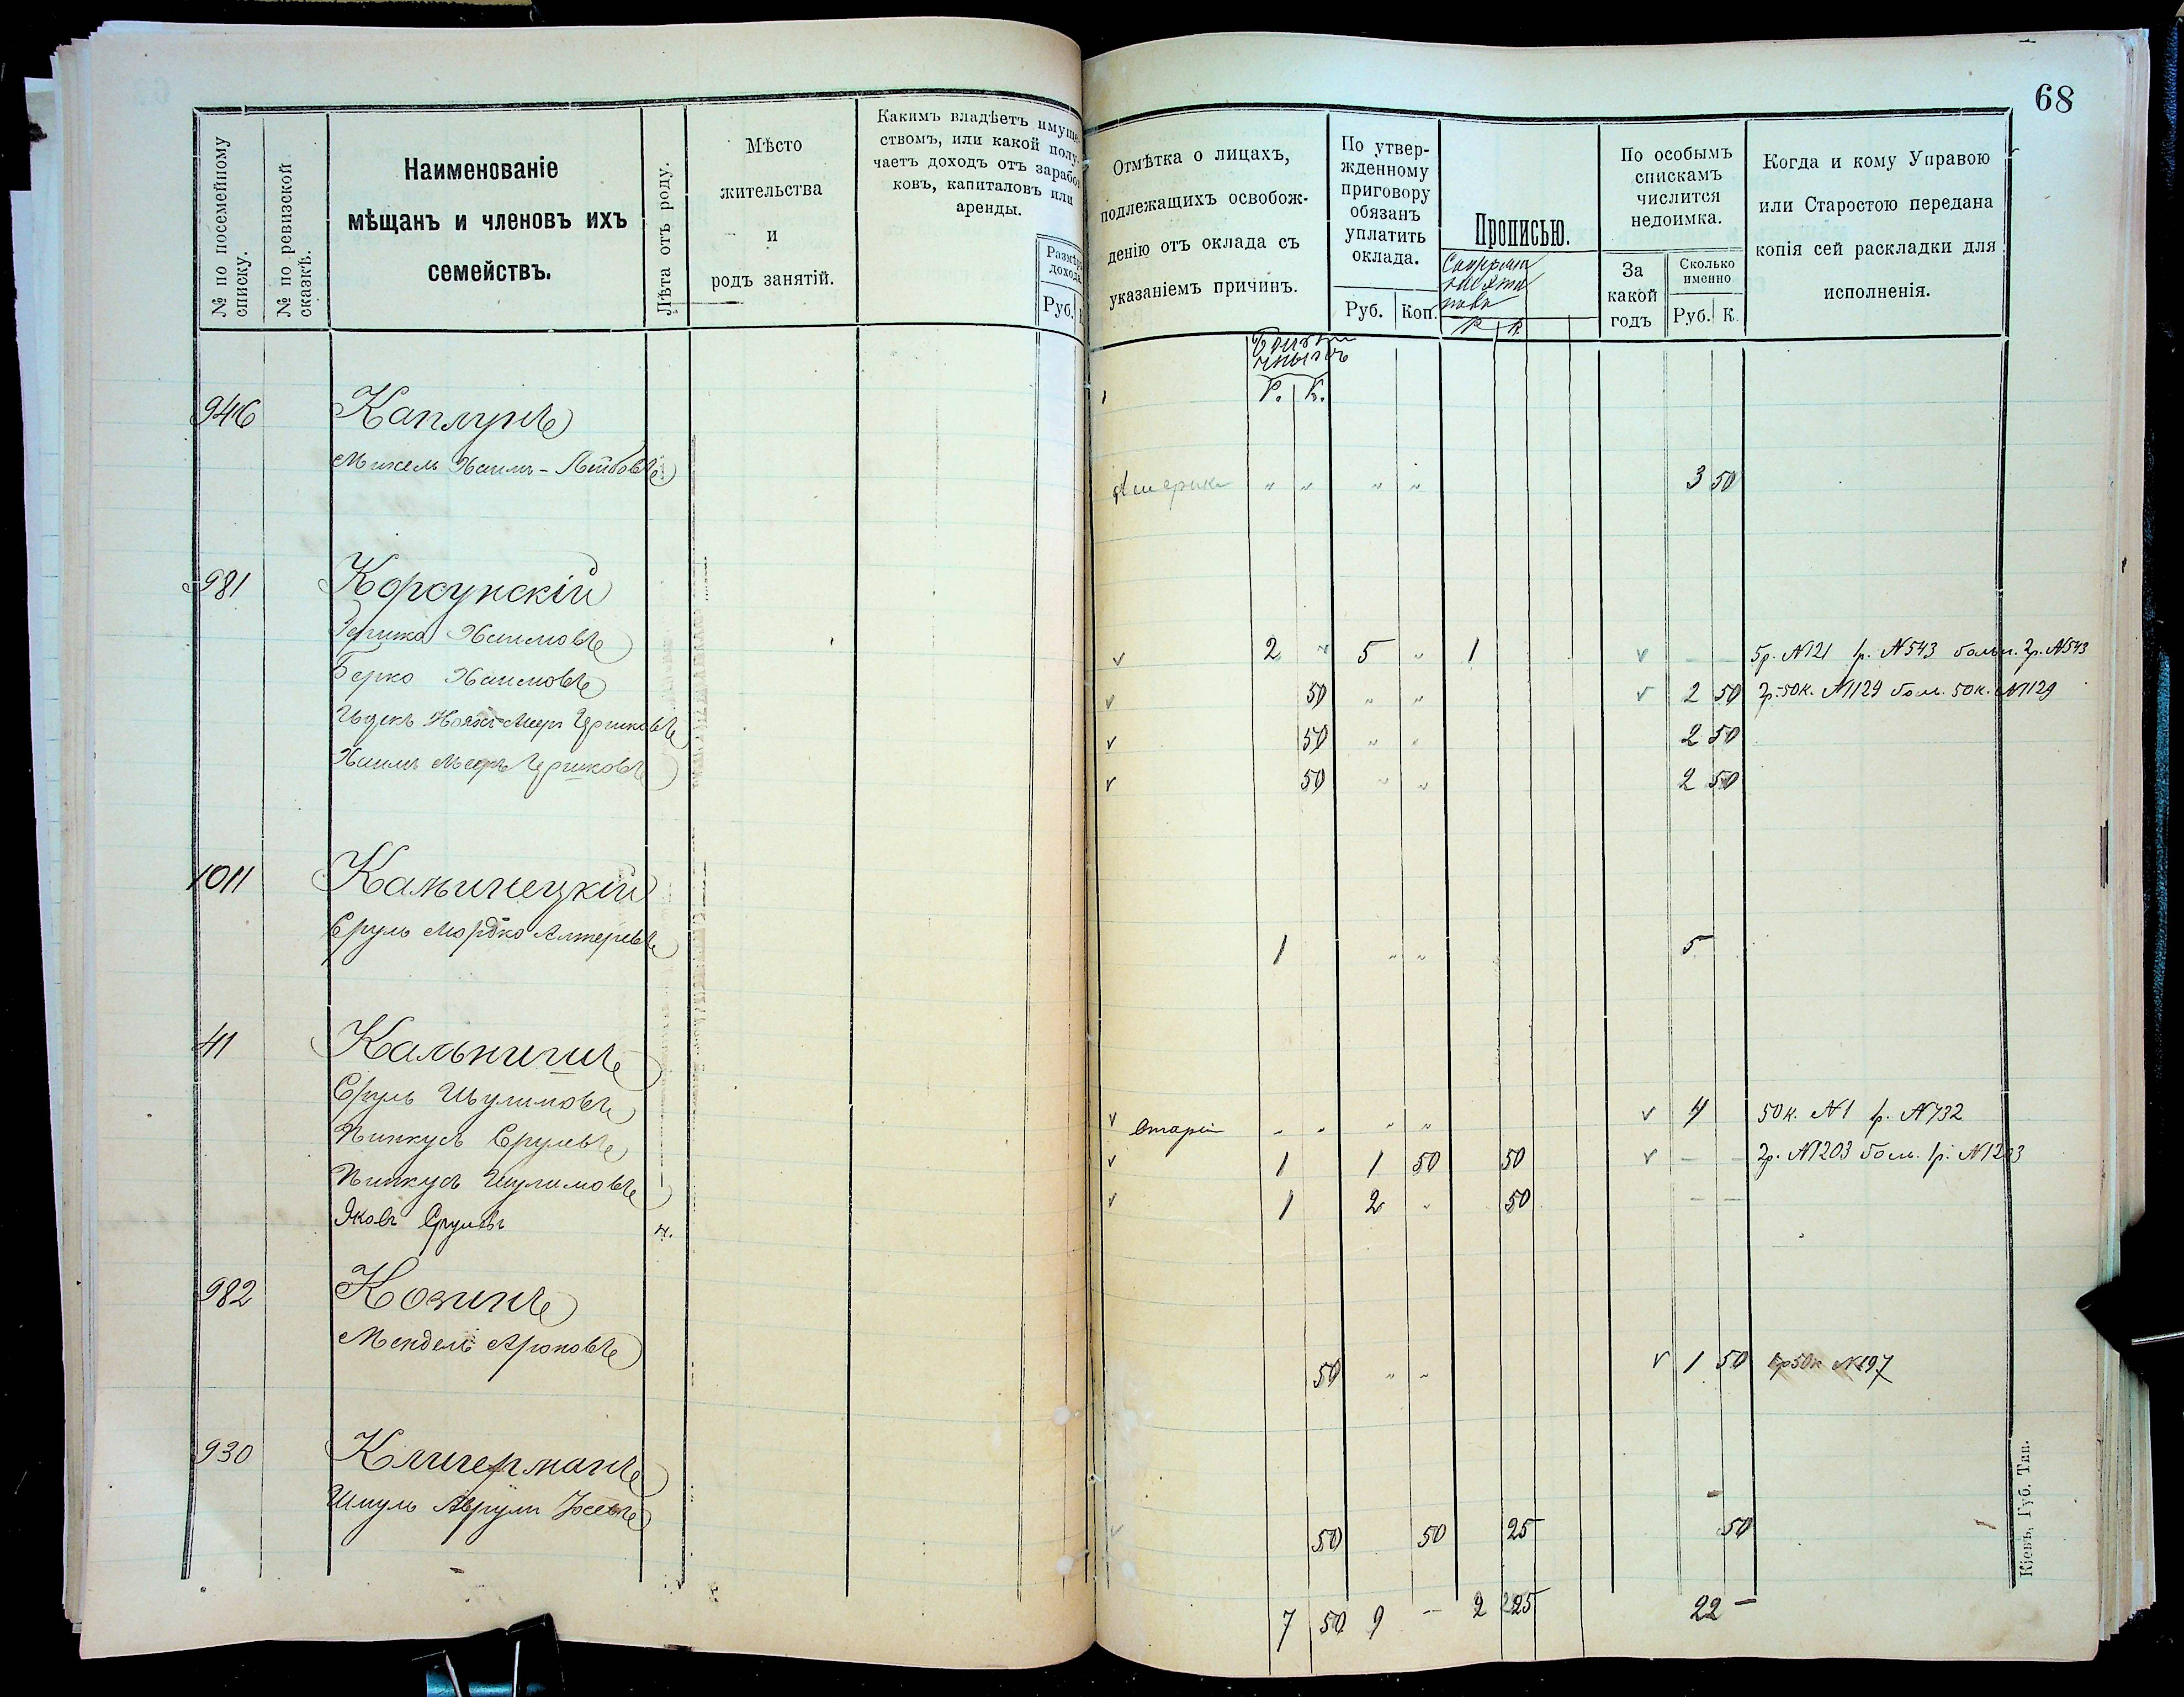 68
№ по посемейному списку.
№ по ревизской сказкѣ.
Наименованіе
мѣщанъ и членовъ ихъ
семействъ.
Лѣта отъ роду.
Мѣсто
жительства
и
родъ занятій.
Какимъ владѣетъ имуще-
ствомъ, или какой полу-
чаетъ доходъ отъ зарабо-
ковъ, капиталовъ или
аренды.
Размѣръ
дохода
Руб.
Отмѣтка о лицахъ,
подлежащихъ освобож-
денію отъ оклада съ
указаніемъ причинъ.
По утвер-
жденному
приговору
обязанъ
уплатить
оклада.
Руб. Коп.
Прописью.
Р. К.
По особымъ
спискамъ
числится
недоимка.
За
какой
годъ
Сколько
именно
Руб. К.
Когда и кому Управою
или Старостою передана
копія сей раскладки для
исполненія.
Р. К.
946 Каплунъ
Хаимъ-Лейбовъ Америка " " " " 3 50
981 Корсунскій
Гершко Хаимовъ v 2 " 5 " 1 v — — 5р. №121 1р. №543 больн. 2р. №543
Берко Хаимовъ v 50 " " v 2 50 2р-50к. №1129 бол. 50к. №1129
v 50 " " 2 50
Хаимъ Мееръ Гершковъ v 50 " " 2 50
1011 Кальницкій
Сруль Мордко Алтеровъ 1 " " 5
41
Сруль Шулимовъ v Старій " " " " v 4 50к. №1 1р. №732
Пинкусъ Срулевъ v 1 1 50 50 v — — 2р. №1203 бол. 1р. №1203
Пинкусъ Шулимовъ v 1 2 " 50 — —
Яковъ Срулевъ
982 Козинъ
Мендель Ароновъ 50 " " v 1 50 1р50к №197
930 Клигерманъ
Шмуль 50 50 25 50
7 50 9 — 2 25 22 —
Кіевъ, Губ. Тип.